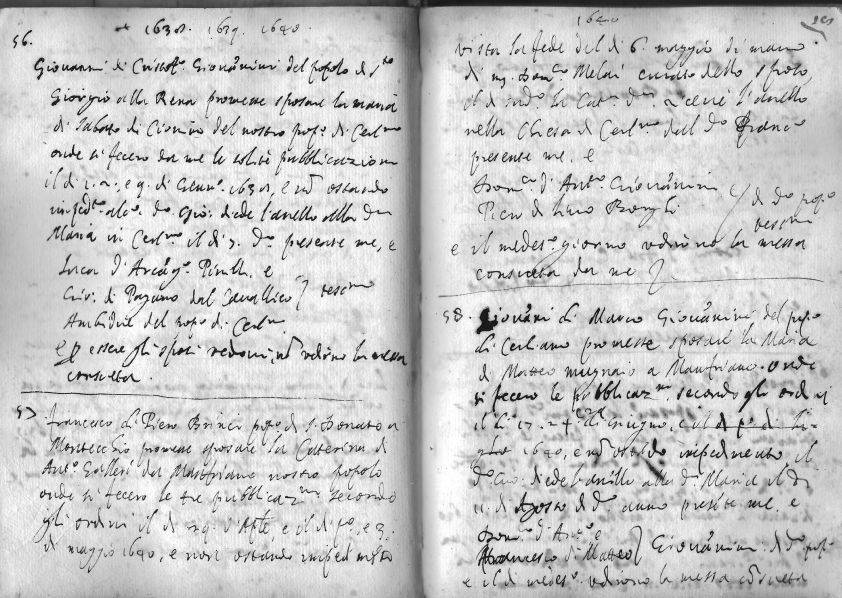 56.
1638. 1639. 1640
Giovanni di Cristof.o Giovānini del popolo di s.to
Giorgio alla Rena promesse sposare la maria
di Sabato di del nostro pop.o di Cerl.no
onde si fecero da me le solite pubblicazioni
il di 1. 2. e 9. di Genn.o 1638, e nō ostando
imped.to alc.o d.o Gio. diede l'anello alla d.a
Maria in Cerl.no il di d.o presente me, e
Luca d' e
Giv. di Pagano dal Cavallico testim.
Ambidue del popo di Cerl.no
e p essere gli sposi vedovi, nō udirno la messa
consueta.
57
francesco di Piero Brinci pop.o di s. Donato a
Montecchio promesse sposare la Caterina di
Ant.o da Manfriano nostro popolo
onde si fecero le tre pubblicaz.ni secondo
gli ordini il di 29. d'Ap.le, e il di p.o, e 3.
di maggio 1640, e non ostando impedim.to
1640
vista la fede del di 6. maggio di mano
di m. Dom.co Melai curato dello sposo,
il di sud.o la Cat.a d.a l'anello
nella Chiesa di Cerl.no dall d.o Franc.o
presente me, e
Dom.co d'Ant.o Giovānini
Piero di Lino di d.o pop.o
testim.
e il medes.o giorno udirno la messa
consueta da me
58.
Giovāni di Marco Giovānini del pop.o
di Cerliano promesse sposare la Maria
di Matteo mugnaio a Manfriano. onde
si fecero le pubblicaz.ni secondo gli ordini
il di 17. 24 di Giugno, e il di p.o di lu-
glio 1640, e nō ostādo impedimento, il
d.o Gio. diede l'anello alla d.a Maria il di
11. di Agosto di d.o anno presēte me, e
Dom.co d'Ant.o e
Francesco di Matteo Giovānini di d.o pop.o
e il di medes.o udirono la messa cōsueta